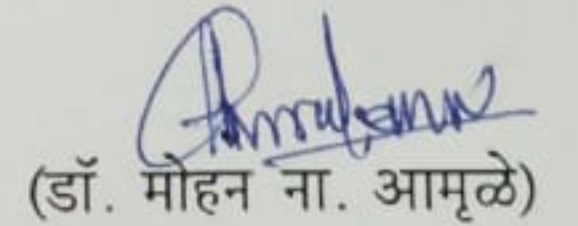 (डॉ. मोहन ना. आमृळे)